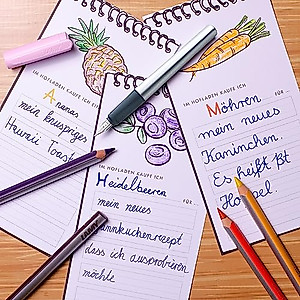 IM HOFLADEN KAUFE ICH EIN
Ananas
mein
Hawaii Toast
IM HOFLADEN KAUFE ICH
FÜR
Heidelbeeren
mein neues
Pfannkuchenrezept
dass ich ausprobieren
möchte
IM HOFLADEN KAUFE ICH
FÜR
Möhren
mein neues
Kaninchen.
Es heißt
Hoppel
LAMY